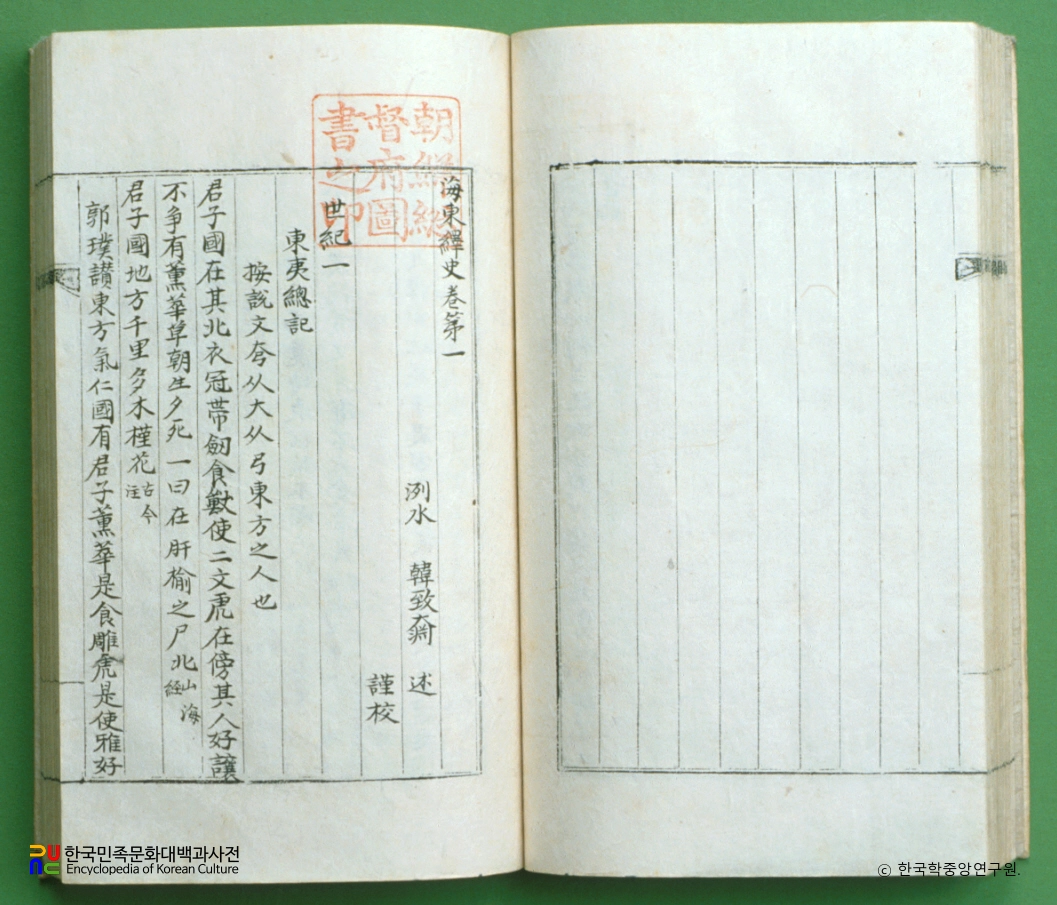 海東繹史卷第一
洌水　韓致奫　述
謹校
世紀一
東夷總記
按說文夸从大从弓東方之人也
君子國在其北衣冠帶劒食獸使二文虎在傍其人好讓
不爭有薰華草朝生夕死一曰在肝榆之尸北山海經
君子國地方千里多木槿花古今注
郭璞讃東方氣仁國有君子薰華是食雕虎是使雅好
朝鮮總督府圖書之印
한국민족문화대백과사전
Encyclopedia of Korean Culture
© 한국학중앙연구원.